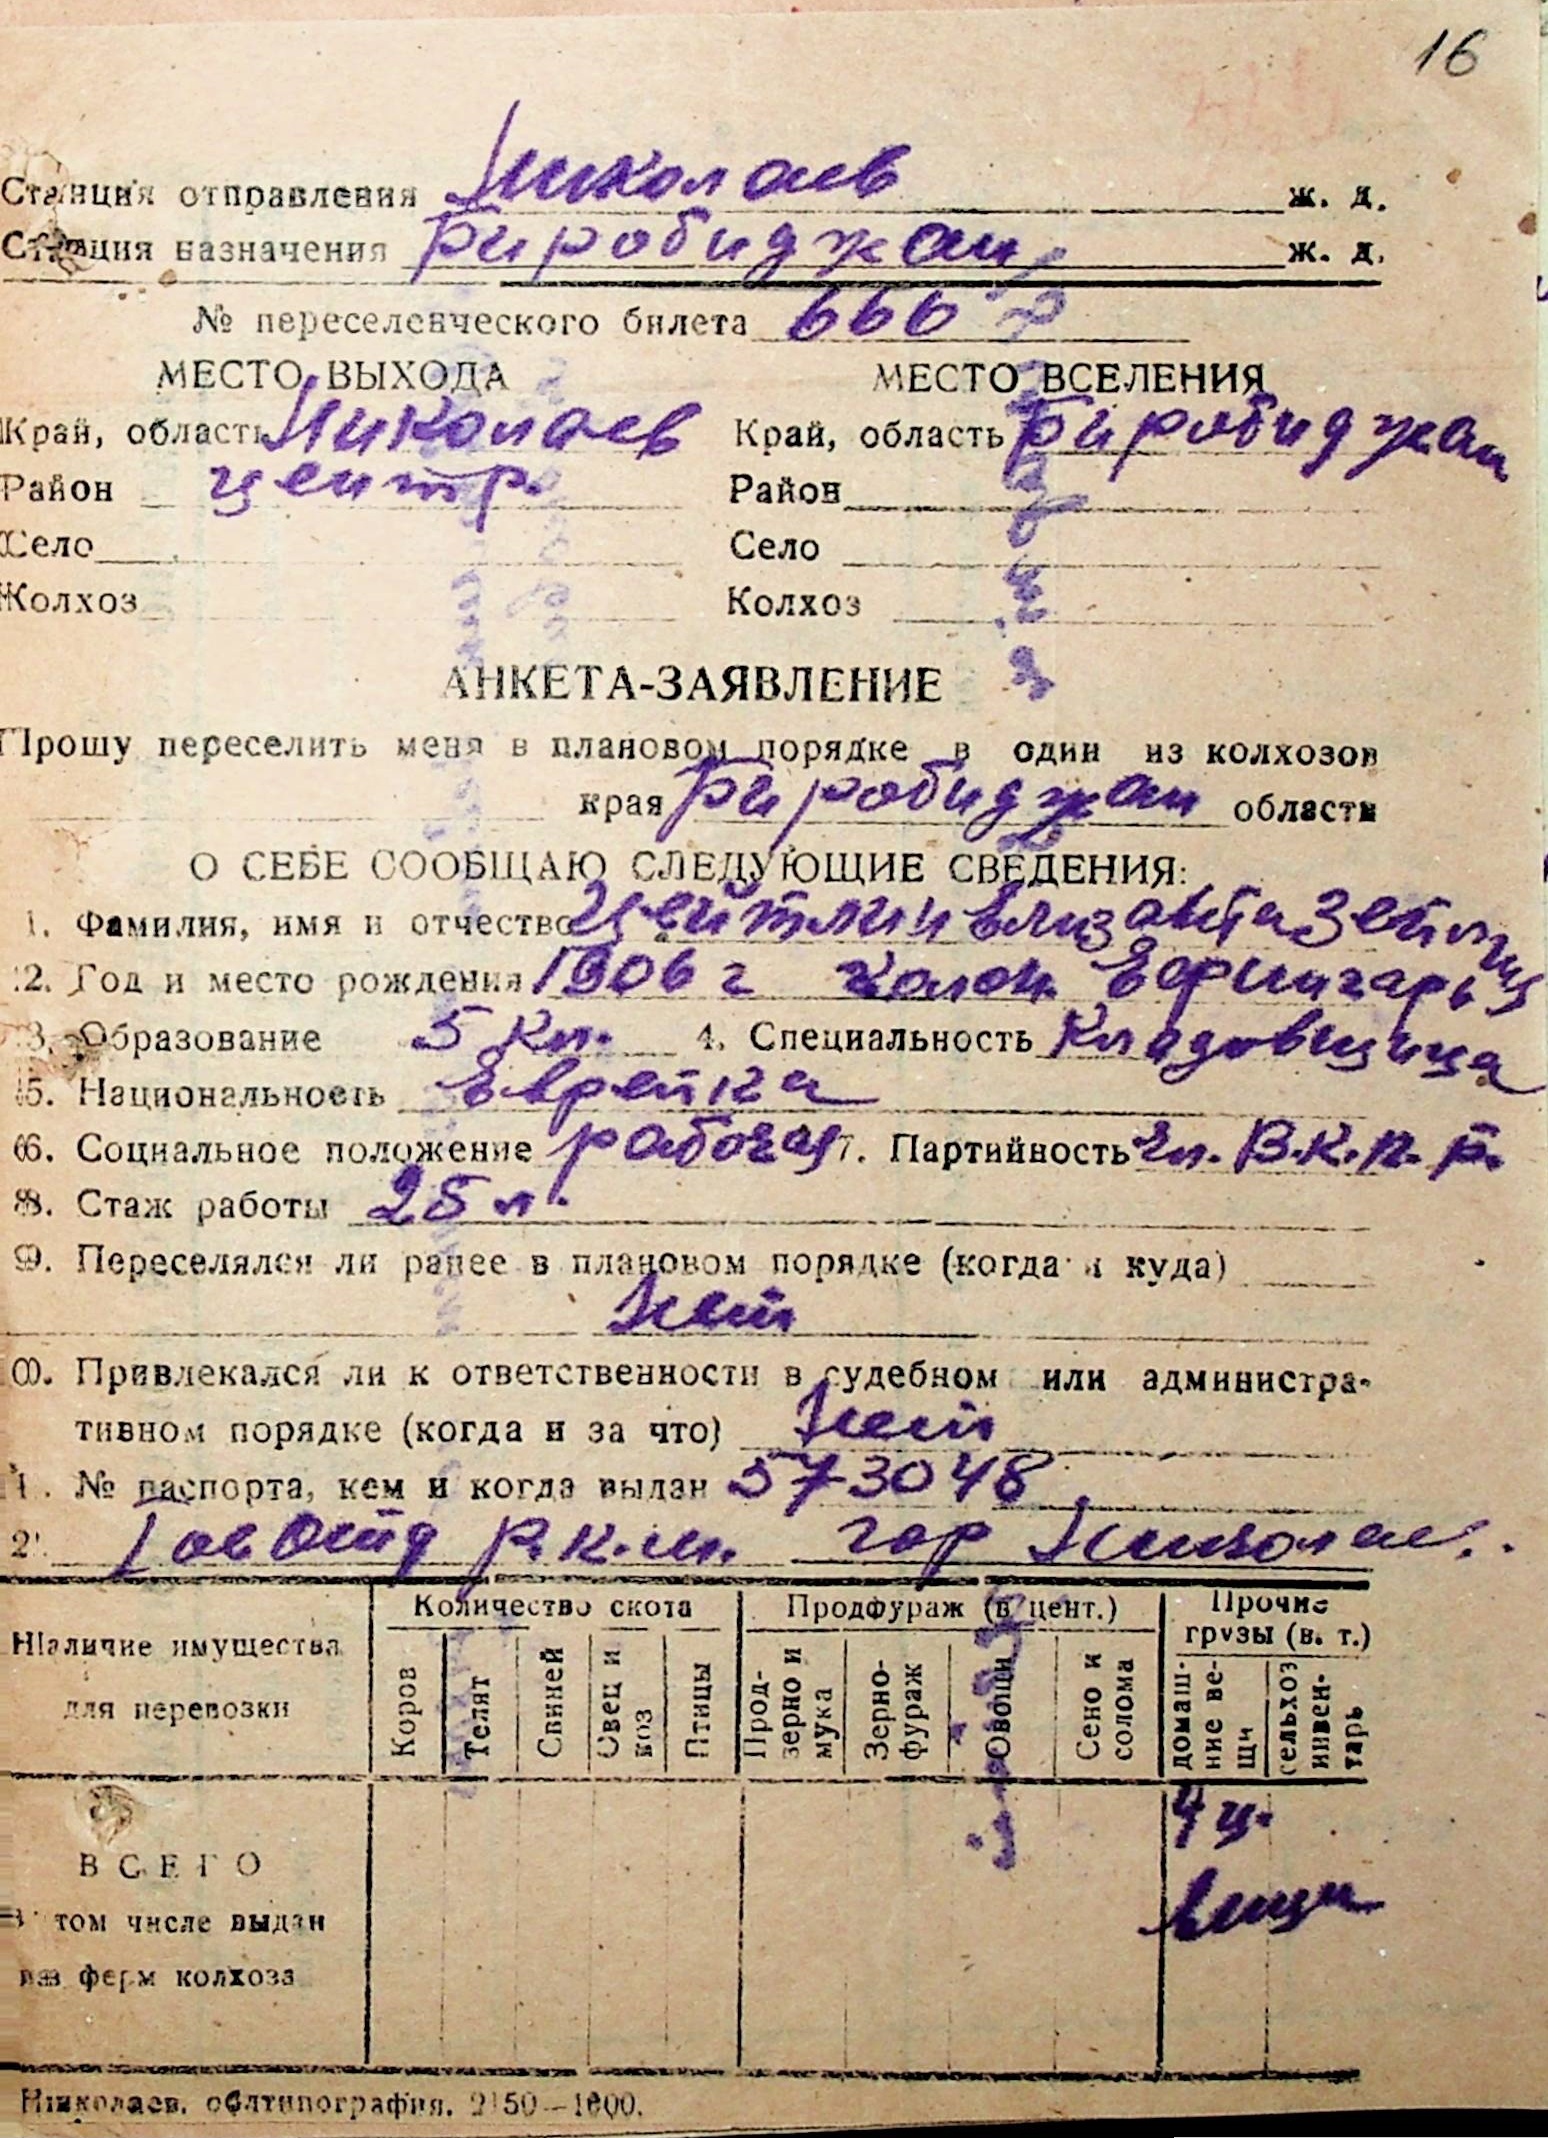 16
Станция отправления Николаев ж. д.
Станция назначения Биробиджан ж. д.
№ переселенческого билета 666
МЕСТО ВЫХОДА МЕСТО ВСЕЛЕНИЯ
Край, область Николаев Край, область Биробиджан
Район центр. Район
Село Село
Колхоз Колхоз
АНКЕТА-ЗАЯВЛЕНИЕ
Прошу переселить меня в плановом порядке в один из колхозов
края Биробиджан области
О СЕБЕ СООБЩАЮ СЛЕДУЮЩИЕ СВЕДЕНИЯ:
1. Фамилия, имя и отчество Цейтлин Елизавета
2. Год и место рождения 1906 г колон. Ефингарь
3. Образование 5 кл. 4. Специальность Кладовщица
5. Национальность Еврейка
6. Социальное положение рабочая 7. Партийность чл. В.К.П.б.
8. Стаж работы 25 л.
9. Переселялся ли ранее в плановом порядке (когда и куда)
Нет
0. Привлекался ли к ответственности в судебном или администра-
тивном порядке (когда и за что) Нет
1. № паспорта, кем и когда выдан 573048
2. Отд Р.К.М. гор Николаев.
Наличие имущества для перевозки
Количество скота Продфураж (в цент.) Прочие грузы (в. т.)
Коров Телят Свиней Овец и коз Птицы Прод-зерно и мука Зерно-фураж Овощи Сено и солома домаш-ние ве-щи сельхоз инвен-тарь
ВСЕГО 4 ц.
вещи
В том числе выдан
из ферм колхоза
Николаев. облтипография. 2150—1000.